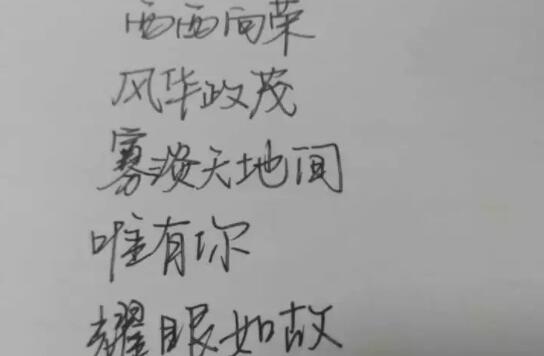 西西向荣
风华政茂
雾漫天地间
唯有你
耀眼如故